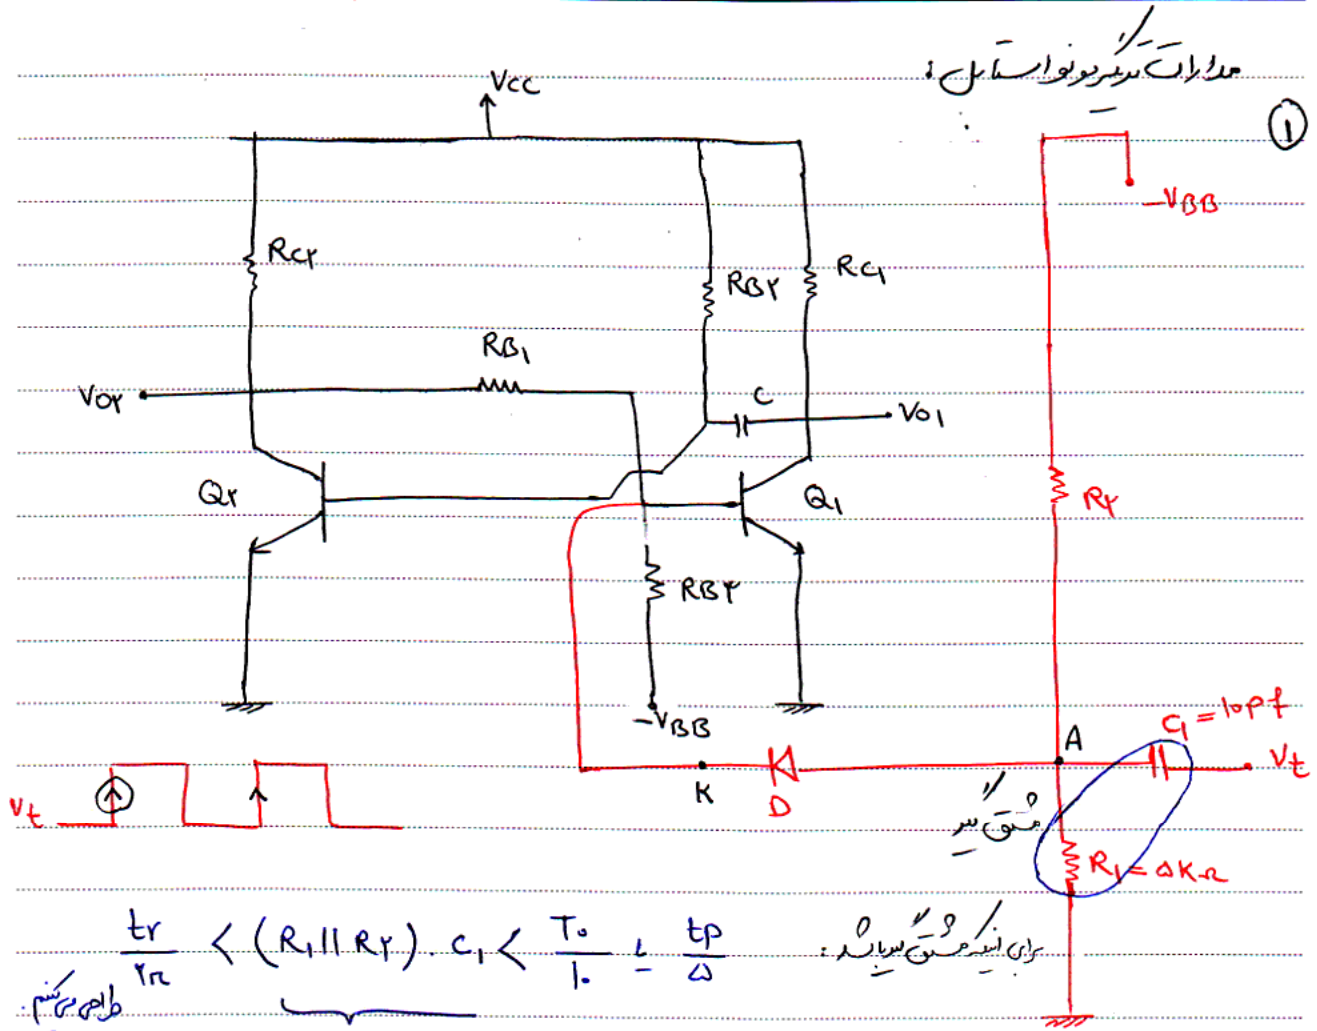 مدارات تریگر مونواستابل :
①
Vcc
-VBB
RC۲
RB۲
RC۱
RB۱
C
VO۲
VO۱
Q۲
Q۱
R۲
RB۲
-VBB
C۱ = 10pf
A
Vt
K
D
Vt
مشتق گیر
R۱ = ۵KΩ
برای اینکه مشتق گیر باشد :
tr/۲π < (R۱ || R۲) . C۱ < T۰/۱۰ یا tp/۵
طراحی می کنیم .